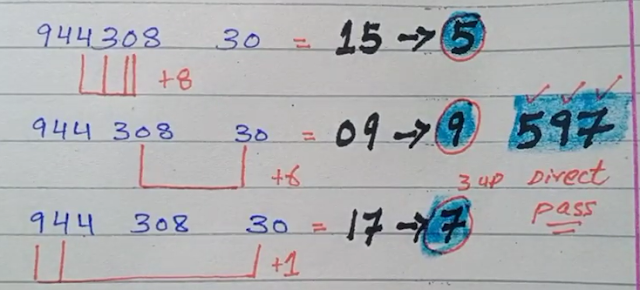 944308 30 = 15 → 5
+8
944 308 30 = 09 → 9 597
+6 3 up Direct
pass
944 308 30 = 17 → 7
+1